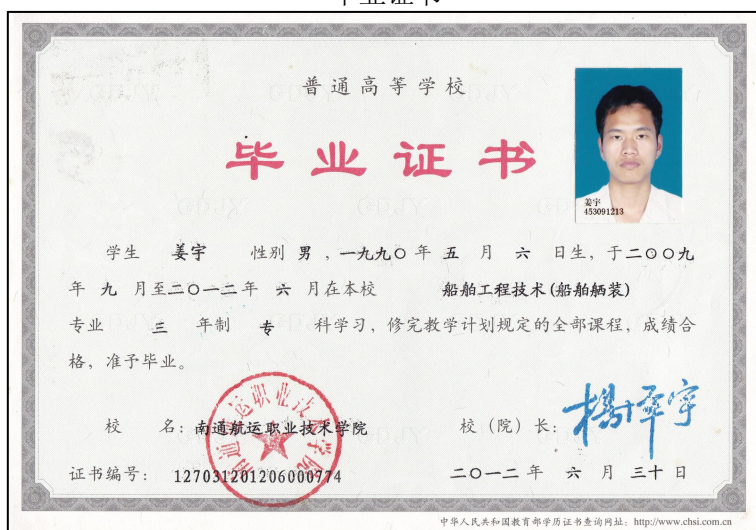 毕业证书
普通高等学校
毕业证书
姜宇
453091213
学生 姜宇 性别 男 ，一九九〇 年 五 月 六 日生，于二〇〇九
年 九 月至二〇一二年 六 月在本校 船舶工程技术(船舶舾装)
专业 三 年制 专 科学习，修完教学计划规定的全部课程，成绩合
格，准予毕业。
校 名：南通航运职业技术学院 校（院）长：
南通航运职业技术学院
证书编号： 127031201206000774 二〇一二 年 六 月 三十 日
中华人民共和国教育部学历证书查询网址：http://www.chsi.com.cn